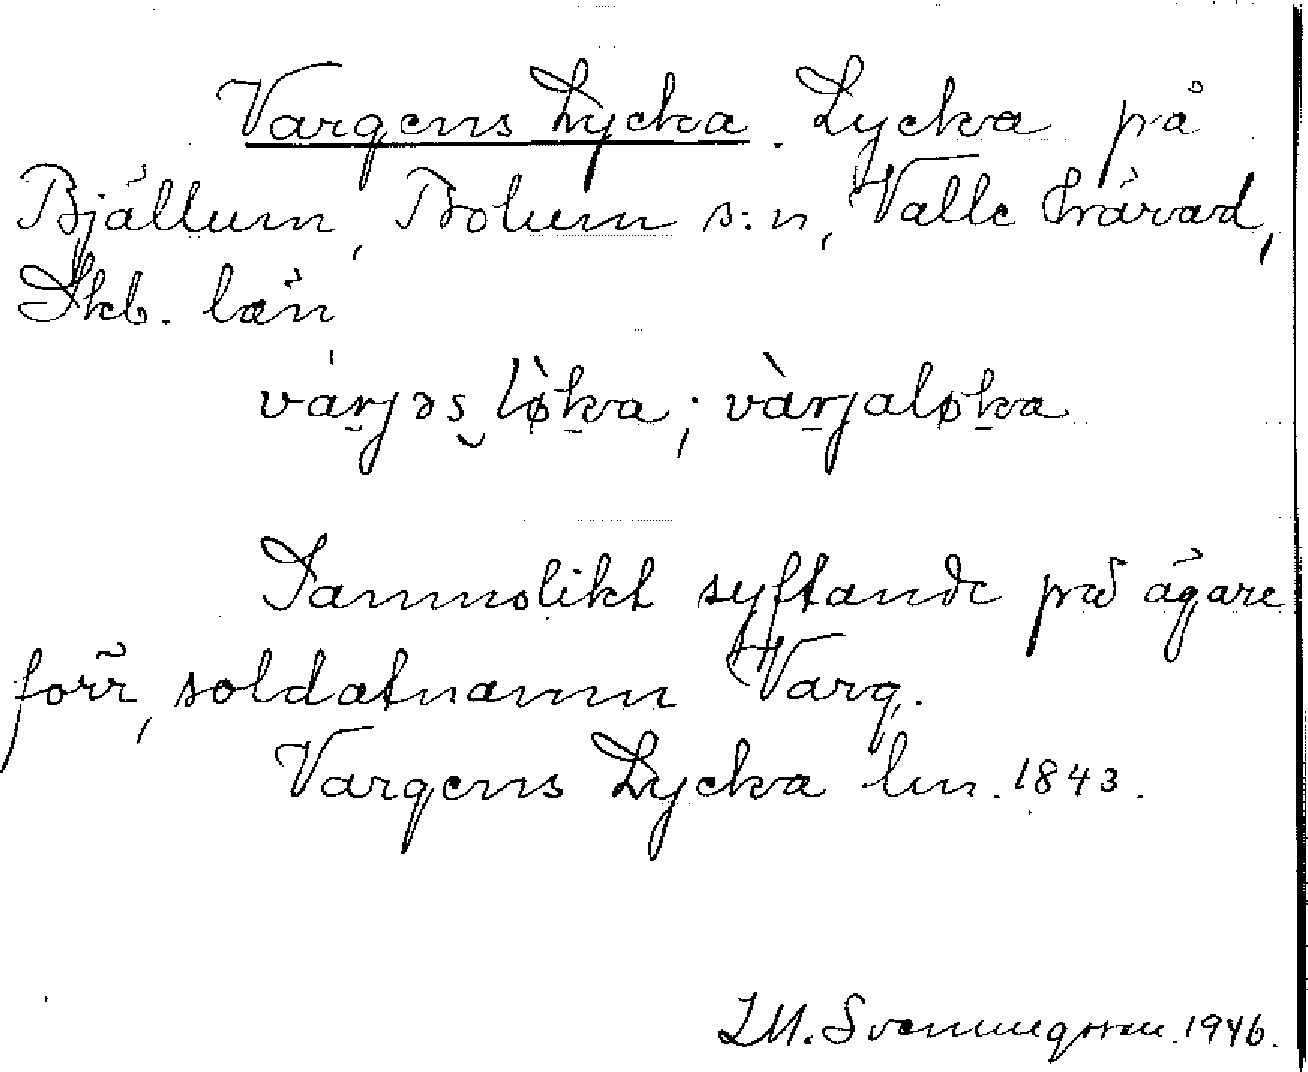 Vargens Lycka. Lycka på
Bjällum, Bolum s:n, Valle härad,
Skb. län
várjəs lø̀ka; vàrjaløka
Sannolikt syftande på ägare
förr, soldatnamn Varg.
Vargens Lycka lm. 1843.
I.M. Svenningsson. 1946.